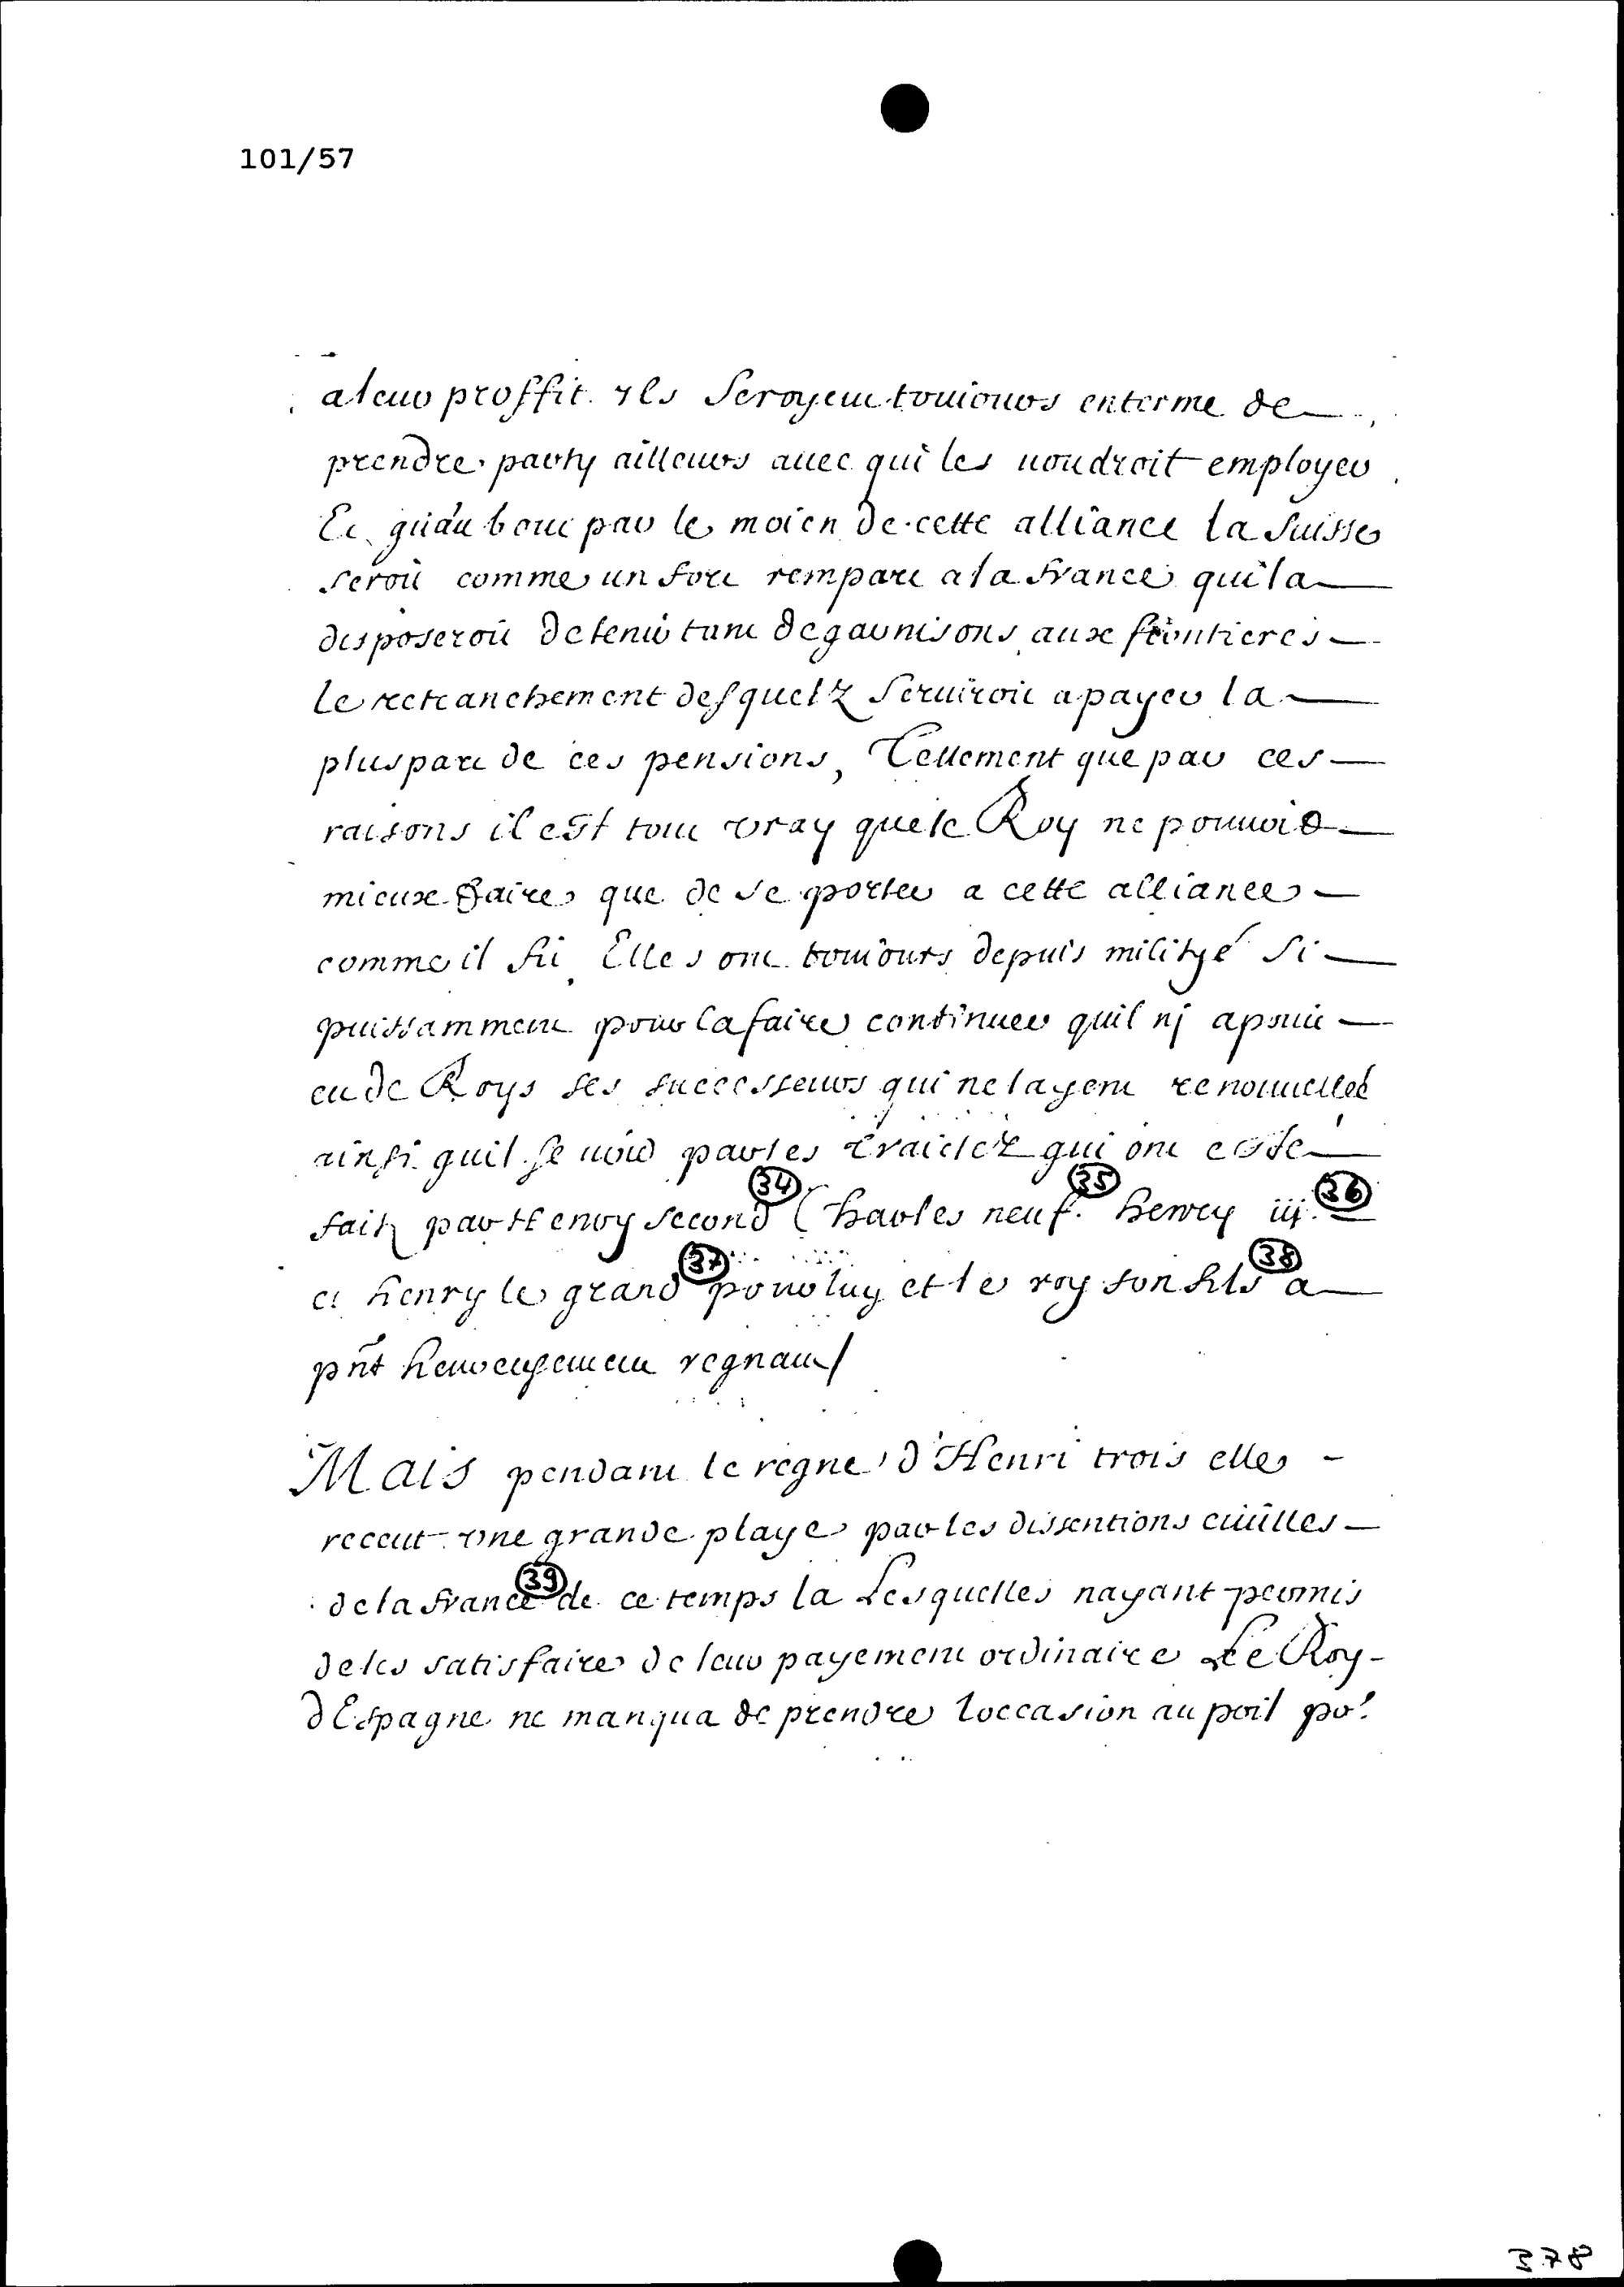 101/57
a leur proffit. Ils Seroyent touiours enterme de
prendre party ailleurs auec qui les uoudroit employer
Et qu'au bout par le moien de cette alliance la Suisse
seroit comme un fort rempart a la france qui la
disposeroit de tenir tant de garnisons aux frontieres
le retranchement desquelz Seruiroit a payer la
pluspart de ces pensions, Tellement que par ces
raisons il est tout vray que le Roy ne pouuoit
mieux faire que de se porter a cette alliance
comme il fit. Elles ont touiours depuis milityé Si
puissamment pour la faire continuer quil nj a point
eu de Roys ses successeurs qui ne layent renouuellee
ainsi quil se uoid par les traictez qui ont esté
faitz par Henry second (34) Charles neuf. (35) henry iij. (36)
et henry le grand (37) pour luy et le roy son fils (38) a
pnt heureusement regnant/
Mais pendant le regne d'Henri trois elle
receut une grande playe par les dissentions ciuilles
de la france (39) de ce temps la Lesquelles nayant permis
de les satisfaire de leur payement ordinaire Le Roy
d'Espagne ne manqua de prendre loccasion au poil por
378